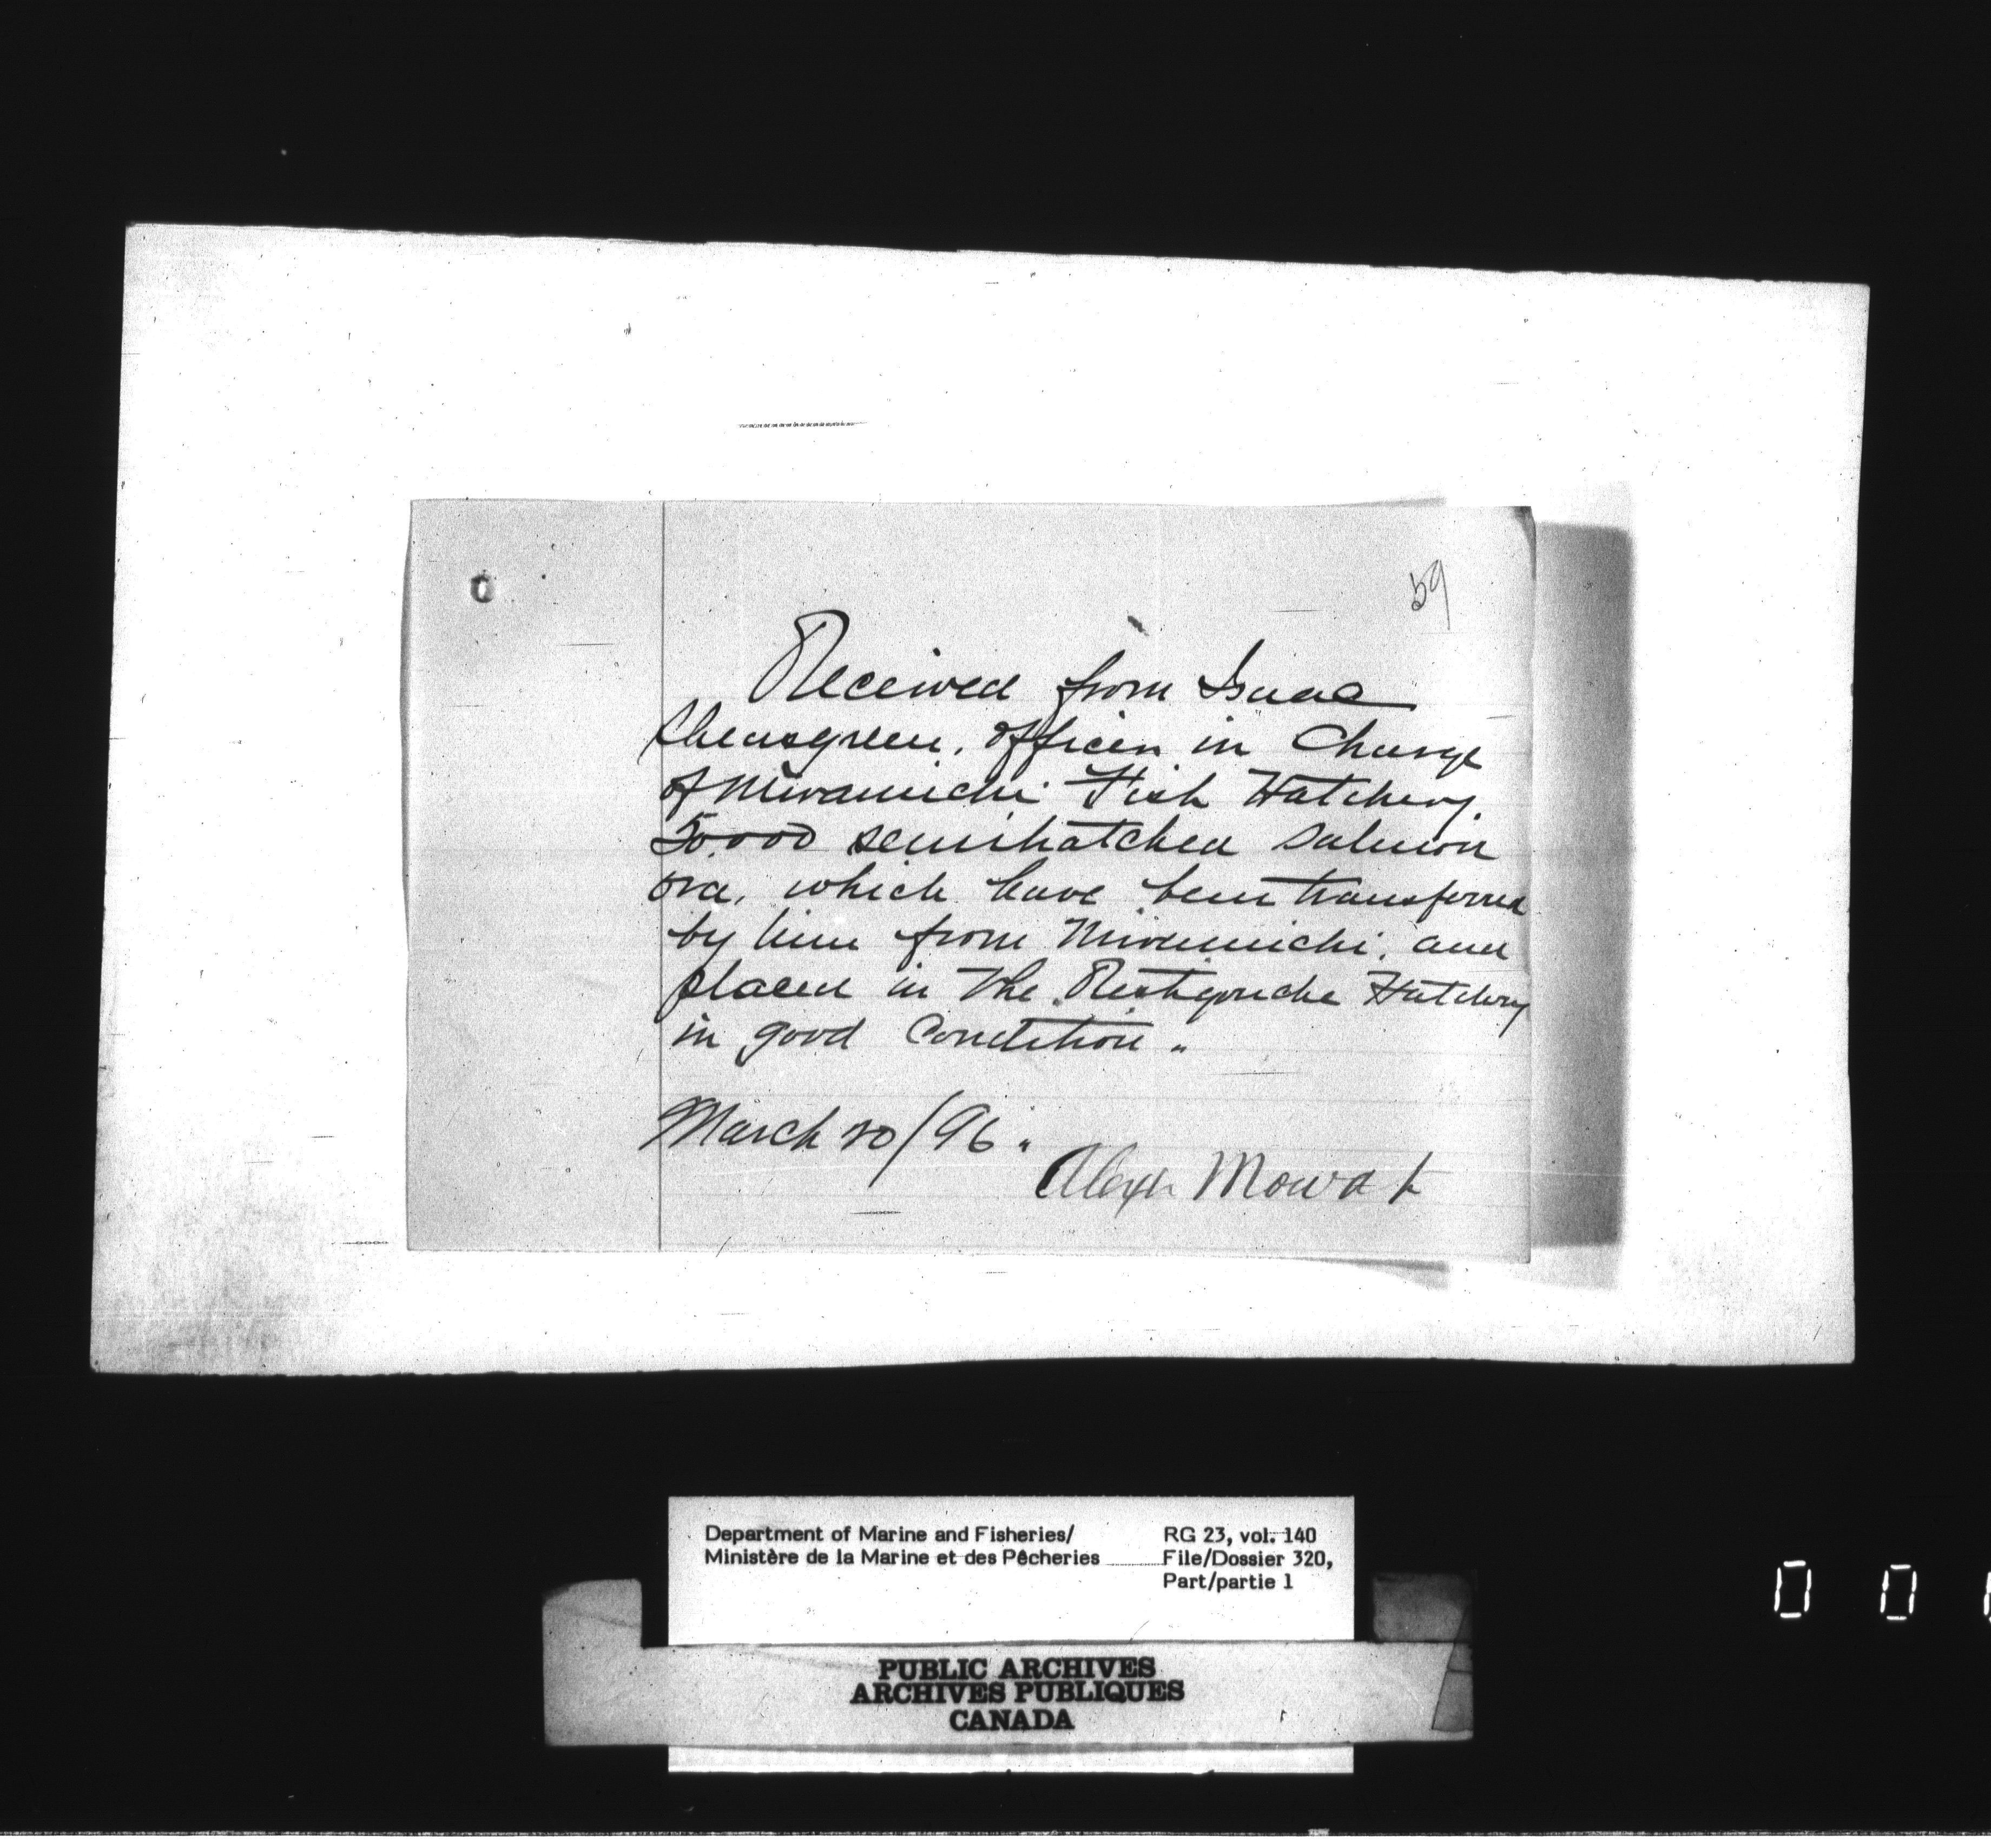 59
Received from Isaac
Sheasgreen, Officer in Charge
of Miramichi Fish Hatchery
50,000 semihatched salmon
ova, which have been transferred
by him from Miramichi, and
placed in The Restigouche Hatchery
in good Condition "
March 20/96 "
Alexr Mowat
Department of Marine and Fisheries/ RG 23, vol. 140
Ministère de la Marine et des Pêcheries File/Dossier 320,
Part/partie 1
PUBLIC ARCHIVES
ARCHIVES PUBLIQUES
CANADA
0 0